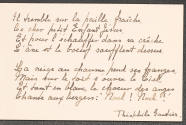 Il tremble sur la paille fraîche
Ce cher petit Enfant Jésus
Et pour l'échauffer dans sa crèche
L'âne et le bœuf soufflent dessus
La neige au chaume pend ses franges
Mais sur le toit s'ouvre le ciel
Et tout en blanc, le chœur des anges
Chante aux bergers: "Noël! Noël!"
Théophile Gautier.